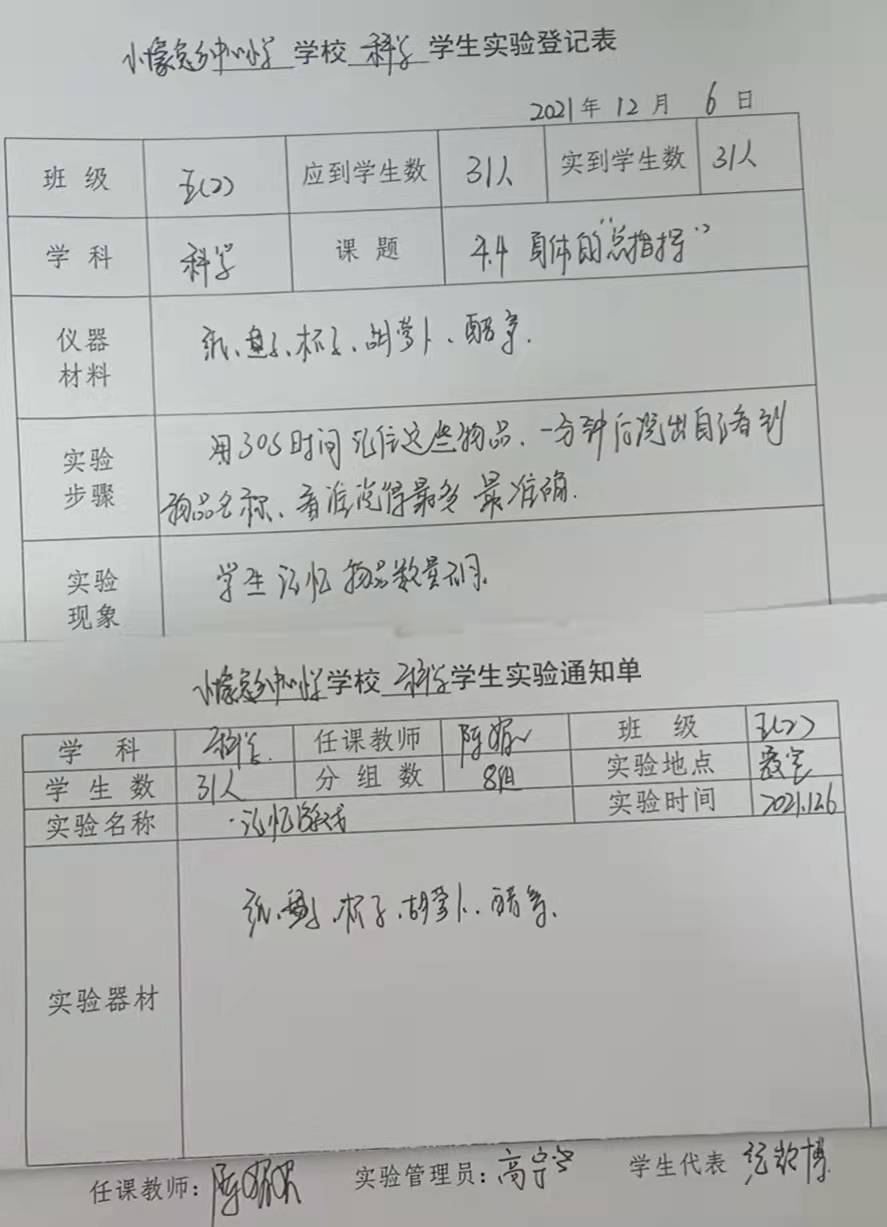 中心小学 学校 科学 学生实验登记表
2021年 12月 6日
班级 五(2) 应到学生数 31人 实到学生数 31人
学科 科学 课题 4.4 身体的“总指挥”
仪器材料 纸、盘子、杯子、胡萝卜、醋等.
实验步骤 用30S时间记住这些物品、一分钟后说出自己看到
物品名称、看谁说得最多 最准确.
实验现象 学生记忆物品数量不同.
中心小学学校 科学学生实验通知单
学科 科学. 任课教师 陈 班级 五(2)
学生数 31人 分组数 8组 实验地点 教室
实验名称 记忆游戏 实验时间 2021.12.6
实验器材 纸、盘子、杯子、胡萝卜、醋等.
任课教师: 陈 实验管理员: 高 学生代表